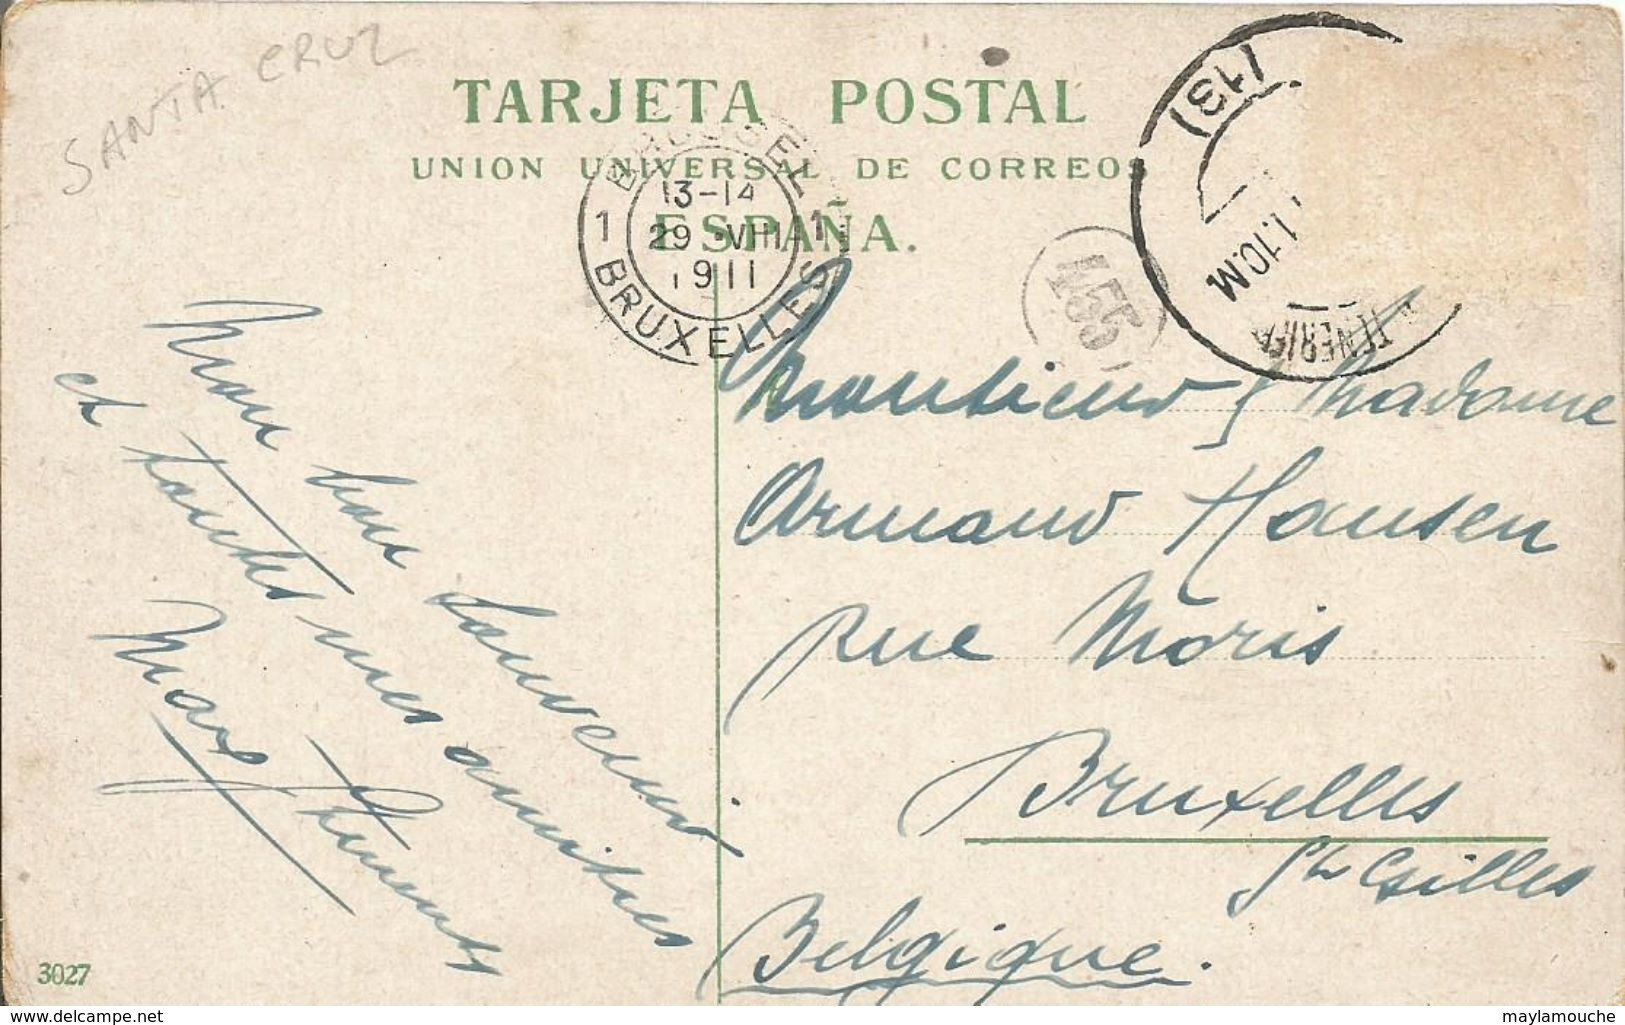 SANTA CRUZ
TARJETA POSTAL
UNION UNIVERSAL DE CORREOS
ESPAÑA.
BRUSSEL
13-14
1 29 VIII 1
1911
BRUXELLES
455
(13)
1.10.M
TENERIFE
Mon bon souvenir
et toutes mes amitiés
Marg
Monsieur & Madame
Armand Hansen
Rue Moris
Bruxelles
St Gilles
Belgique.
3027
delcampe.net
maylamouche